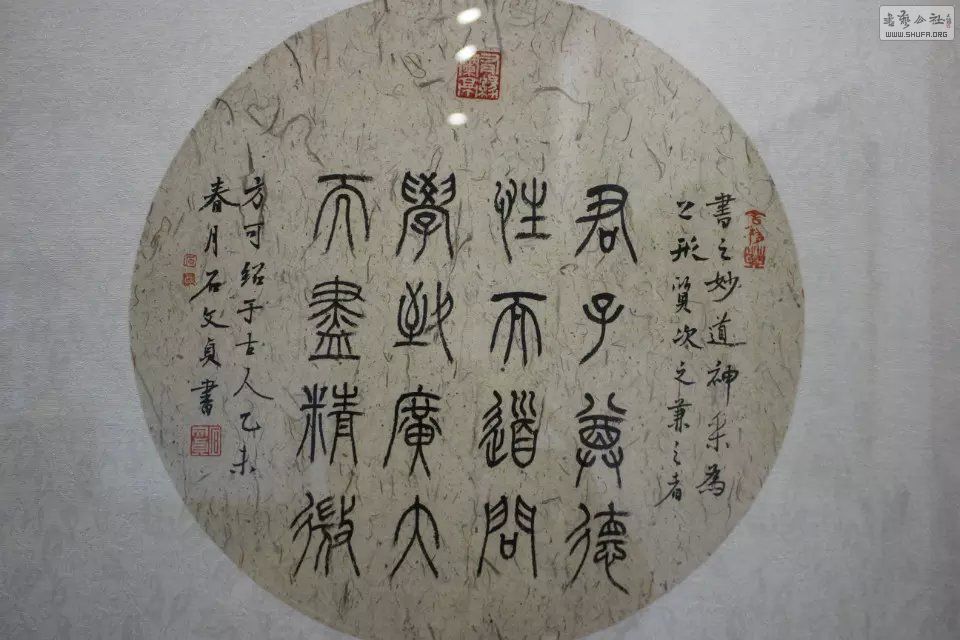 書之妙道神采為
上形質次之兼之者
君子尊德
性而道問
學致廣大
而盡精微
方可紹于古人乙未
春月石文貞書
书艺公社
WWW.SHUFA.ORG